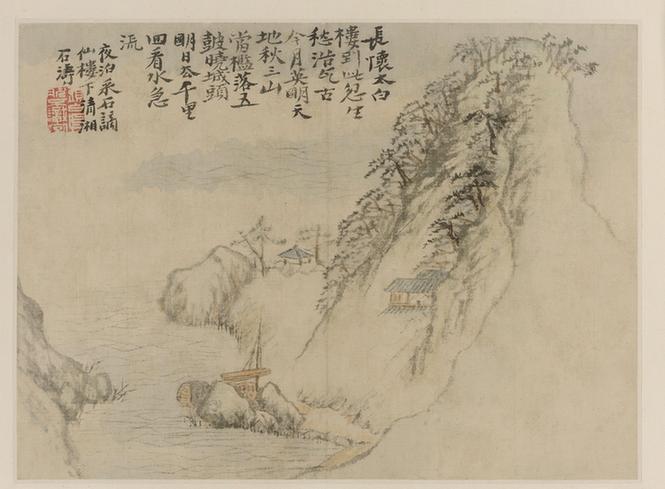 長懷太白
樓到此忽生
愁浩气古
今月英明天
地秋三山
當檻落五
鼓曉城頭
明日去千里
回看水急
流
夜泊采石謫
仙樓下清湘
石濤